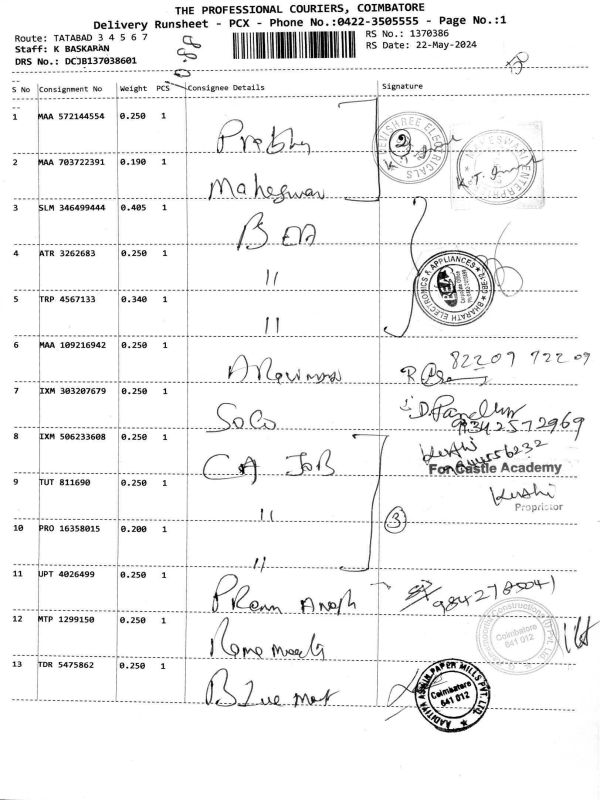 THE PROFESSIONAL COURIERS, COIMBATORE
Delivery Runsheet - PCX - Phone No.:0422-3505555 - Page No.:1
Route: TATABAD 3 4 5 6 7
RS No.: 1370386
Staff: K BASKARAN
RS Date: 22-May-2024
DRS No.: DCJB137038601
S No Consignment No Weight PCS Consignee Details Signature
1 MAA 572144554 0.250 1 Prabhu
2 MAA 703722391 0.190 1 Maheswari
3 SLM 346499444 0.405 1 BEA
4 ATR 3262683 0.250 1 "
5 TRP 4567133 0.340 1 "
BHARATH ELECTRONICS & APPLIANCES
BEA
6 MAA 109216942 0.250 1 82209 72209
7 IXM 303207679 0.250 1 SoCo
9342572969
8 IXM 506233608 0.250 1 CA JOB
For Castle Academy
9 TUT 811690 0.250 1 "
Proprietor
10 PRO 16358015 0.200 1 " 3
11 UPT 4026499 0.250 1
9842785041
12 MTP 1299150 0.250 1
Coimbatore
641 012
13 TDR 5475862 0.250 1
AADITYA ASWIN PAPER MILLS PVT. LTD.
Coimbatore
641 012